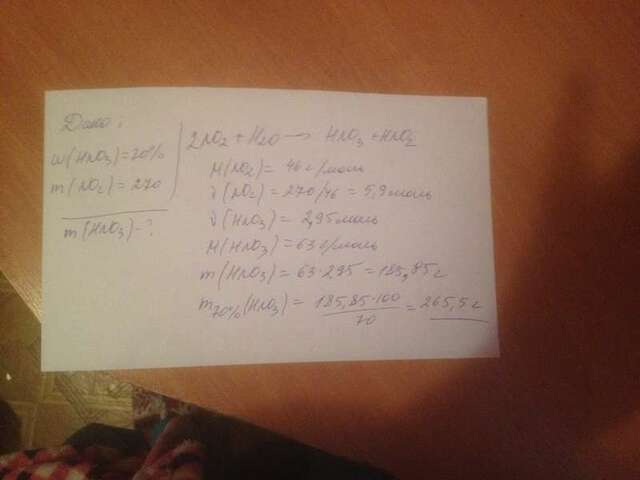 Дано:
ω(HNO₃)=70%
m(NO₂)=270
m(HNO₃)-?
2NO₂ + H₂O → HNO₃ + HNO₂
M(NO₂) = 46 г/моль
ν(NO₂) = 270/46 = 5,9 моль
ν(HNO₃) = 2,95 моль
M(HNO₃) = 63 г/моль
m(HNO₃) = 63·2,95 = 185,85 г
m70%(HNO₃) = 185,85·100 / 70 = 265,5 г